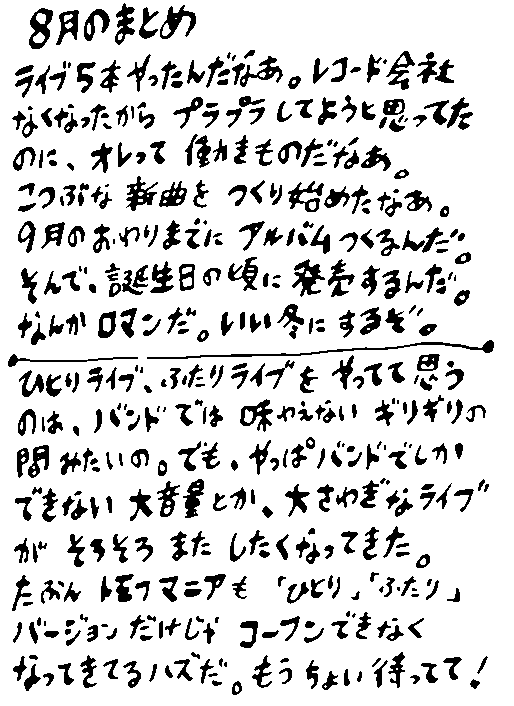 8月のまとめ
ライブ5本やったんだなあ。レコード会社
なくなったから プラプラしてようと思ってた
のに、オレって 働きものだなあ。
こつぶな 新曲を つくり始めたなあ。
9月のおわりまでに アルバムつくるんだ。
そんで、誕生日の頃に 発売するんだ。
なんか ロマンだ。いい冬にするぞ。
ひとりライブ、ふたりライブを やってて思う
のは、バンドでは 味わえない ギリギリの
間みたいの。でも、やっぱバンドでしか
できない 大音量とか、大さわぎなライブ
が そろそろ また したくなってきた。
たぶん トモフマニアも 「ひとり」「ふたり」
バージョンだけじゃ コーフンできなく
なってきてるハズだ。もうちょい待ってて!